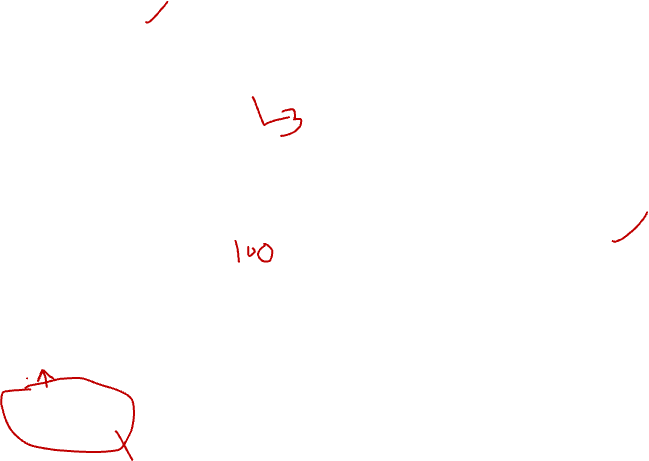 L3
100